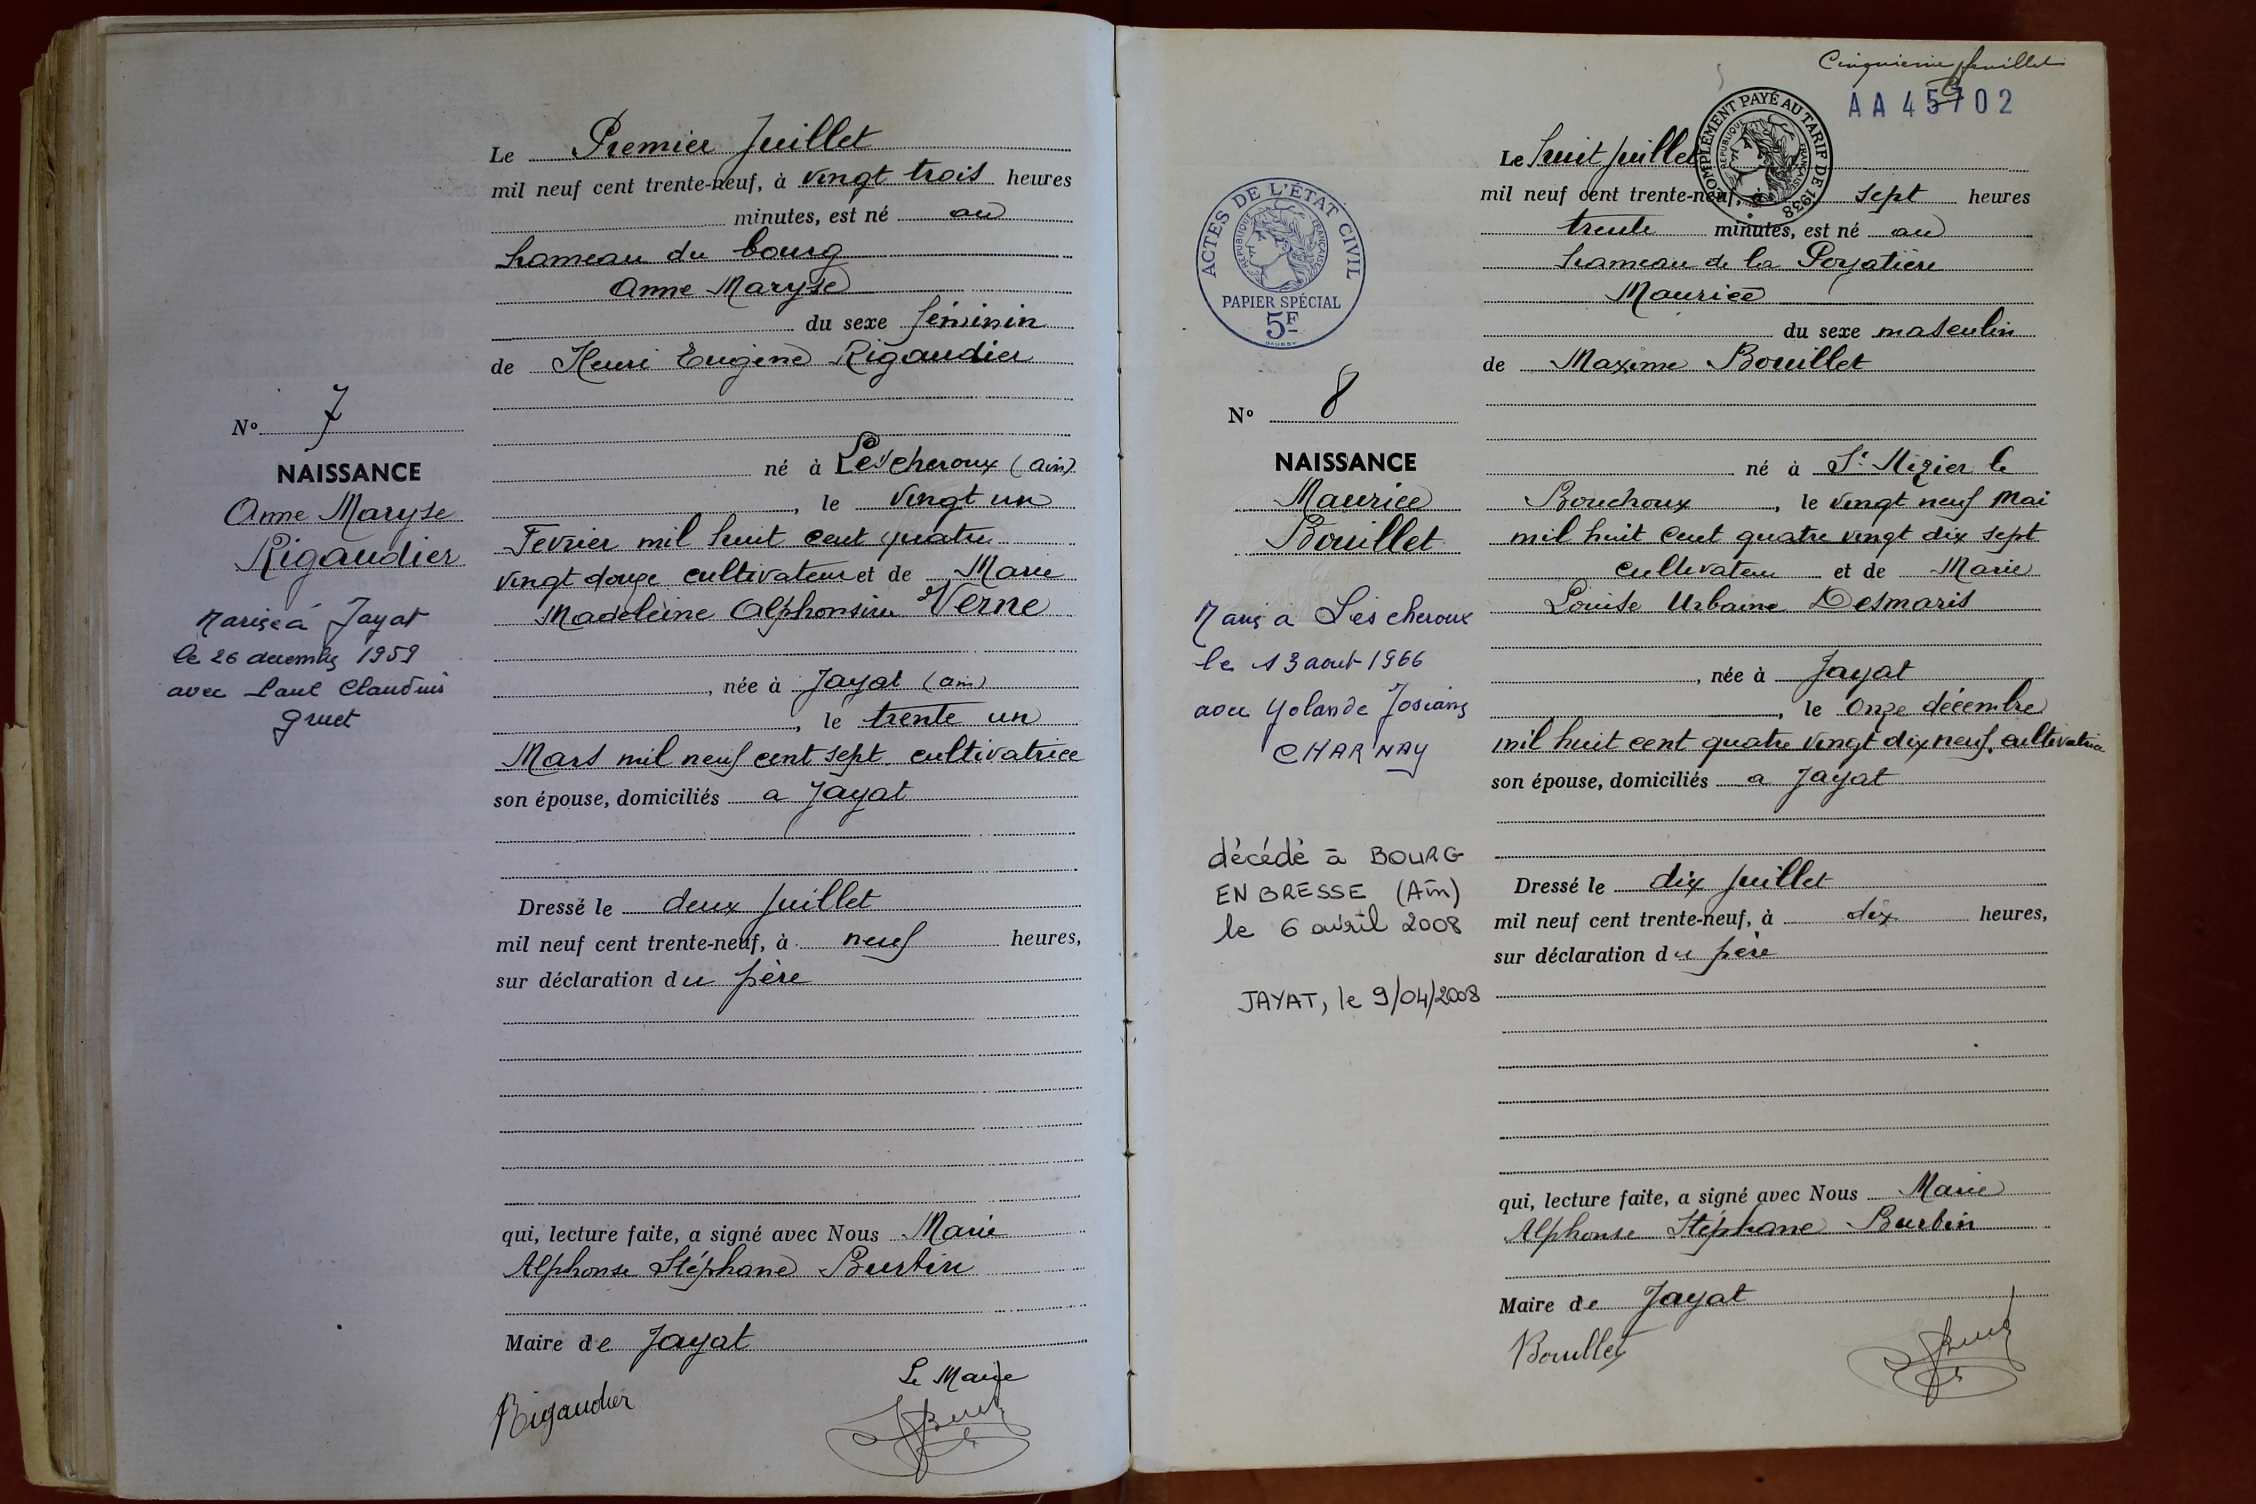 Le Premier Juillet
mil neuf cent trente-neuf, à vingt trois heures
minutes, est né au
hameau du bourg
Anne Maryse
du sexe féminin
de Henri Eugène Rigaudier
né à Lescheroux (ain)
, le vingt un
Fevrier mil huit cent quatre
vingt douze cultivateur et de Marie
Madeleine Alphonsine Verne
, née à Jayat (ain)
, le trente un
Mars mil neuf cent sept cultivatrice
son épouse, domiciliés a Jayat
Dressé le deux Juillet
mil neuf cent trente-neuf, à neuf heures,
sur déclaration du père
qui, lecture faite, a signé avec Nous Marie
Alphonse Stéphane Burtin
Maire de Jayat
Le Maire
Rigaudier
No 7
NAISSANCE
Anne Maryse
Rigaudier
Mariée à Jayat
le 26 decembre 1959
avec Paul Claudius
Gruet
Cinquième feuillet
AA 45702
COMPLÉMENT PAYÉ AU TARIF DE 1938
RÉPUBLIQUE FRANÇAISE
ACTES DE L'ÉTAT CIVIL
RÉPUBLIQUE FRANÇAISE
PAPIER SPÉCIAL
5F
No 8
NAISSANCE
Maurice
Bouillet
Marié a Lescheroux
le 13 aout 1966
avec Yolande Josiane
CHARNAY
décédé à BOURG
EN BRESSE (Ain)
le 6 avril 2008
JAYAT, le 9/04/2008
Le huit Juillet
mil neuf cent trente-neuf, à sept heures
trente minutes, est né au
hameau de la Poyatière
Maurice
du sexe masculin
de Maxime Bouillet
né à St Nizier le
Bouchoux, le vingt neuf Mai
mil huit cent quatre vingt dix sept
cultivateur et de Marie
Louise Urbaine Desmaris
, née à Jayat
, le Onze décembre
mil huit cent quatre vingt dix neuf, cultivatrice
son épouse, domiciliés a Jayat
Dressé le dix Juillet
mil neuf cent trente-neuf, à dix heures,
sur déclaration du père
qui, lecture faite, a signé avec Nous Marie
Alphonse Stéphane Burtin
Maire de Jayat
Bouillet